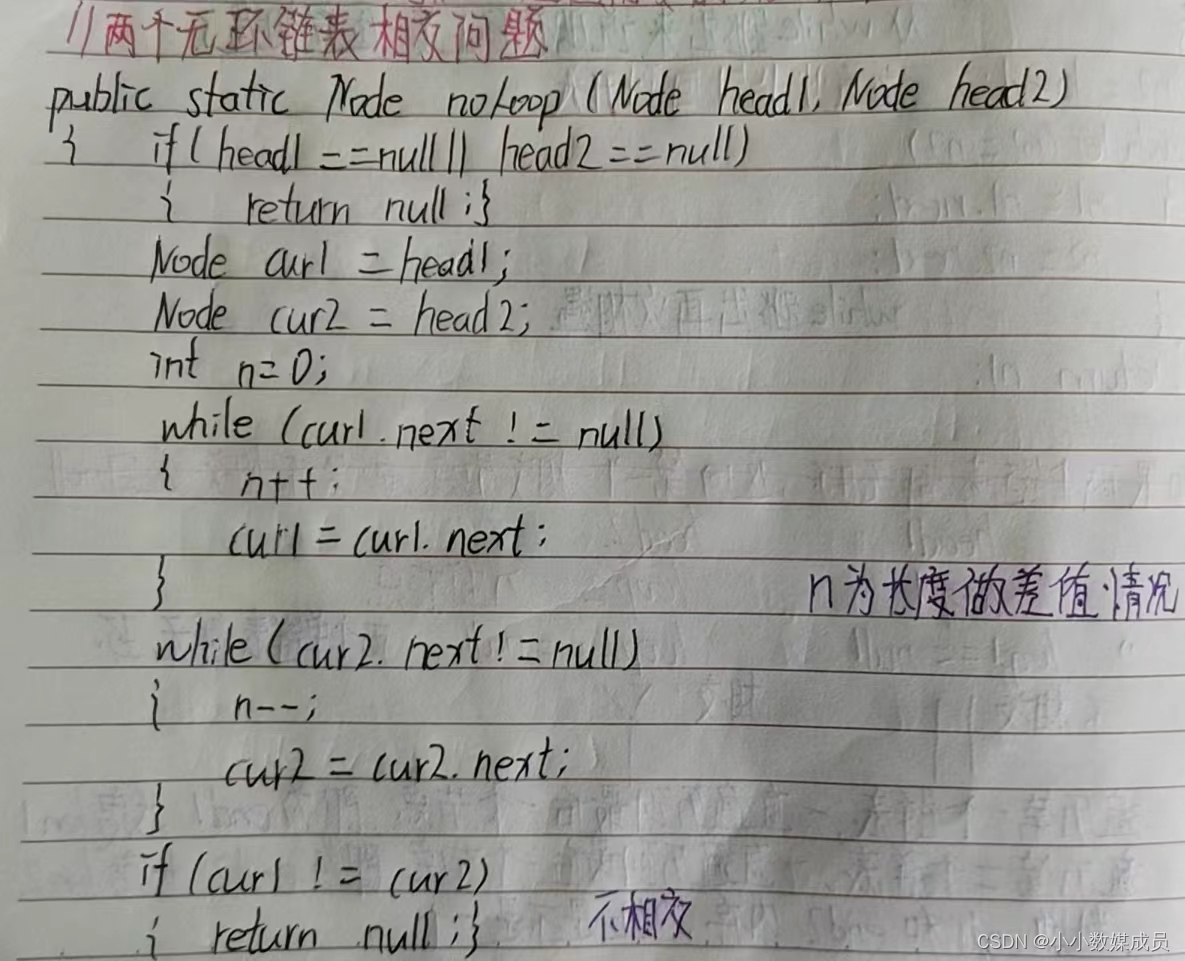 //两个无环链表相交问题
public static Node noLoop (Node head1, Node head2)
{ if( head1 ==null || head2 ==null)
{ return null;}
Node cur1 = head1;
Node cur2 = head2;
int n=0;
while (cur1.next != null)
{ n++;
cur1 = cur1.next;
}
n为长度做差值情况
while (cur2.next != null)
{ n--;
cur2 = cur2.next;
}
if (cur1 != cur2)
{ return null;} 不相交
CSDN @小小数媒成员